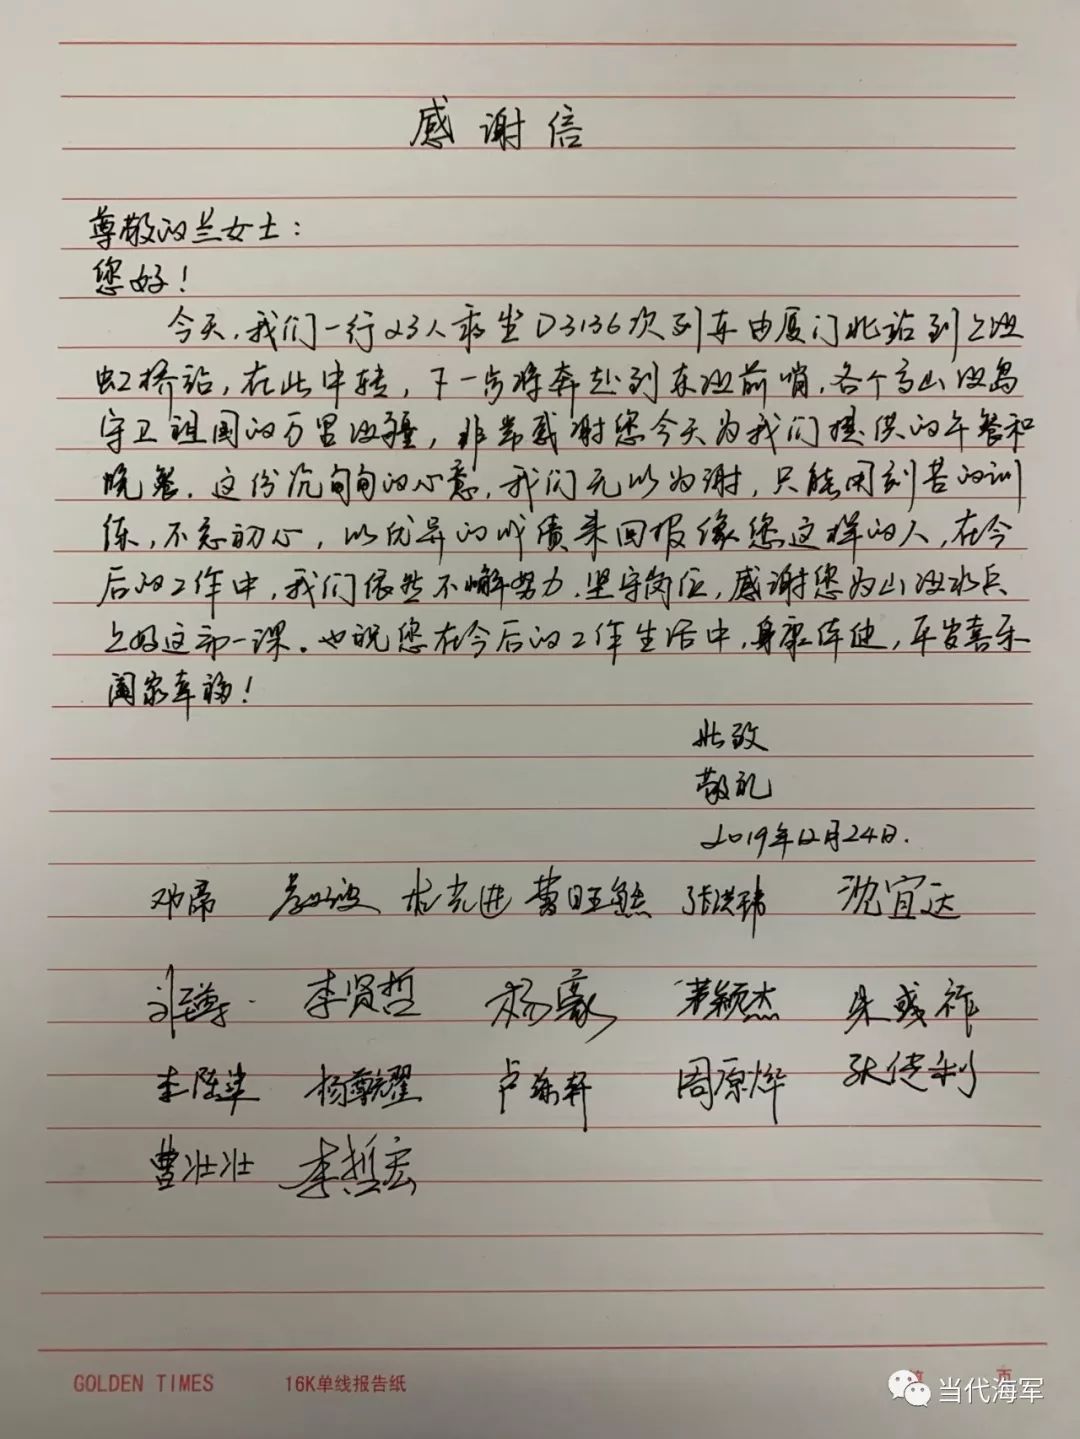 感谢信
尊敬的兰女士：
您好！
今天，我们一行23人乘坐D3136次列车由厦门北站到上海
虹桥站，在此中转，下一步将奔赴到东海前哨，各个高山海岛
守卫祖国的万里海疆，非常感谢您今天为我们提供的午餐和
晚餐，这份沉甸甸的心意，我们无以为谢，只能用刻苦的训
练，不忘初心，以优异的成绩来回报像您这样的人，在今
后的工作中，我们依然不懈努力，坚守岗位，感谢您为山海水兵
上好这第一课。也祝您在今后的工作生活中，身康体健，平安喜乐
阖家幸福！
此致
敬礼
2019年12月24日.
邓席 沈宜达
李贤哲 杨豪 颖杰
杨尊耀 周原烨
曹壮壮 李哲宏
GOLDEN TIMES 16K单线报告纸 页
当代海军